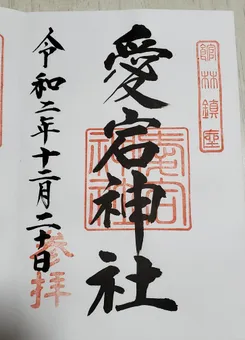 館林鎮座
愛宕神社
愛宕神社
令和二年十二月二十日
参拝